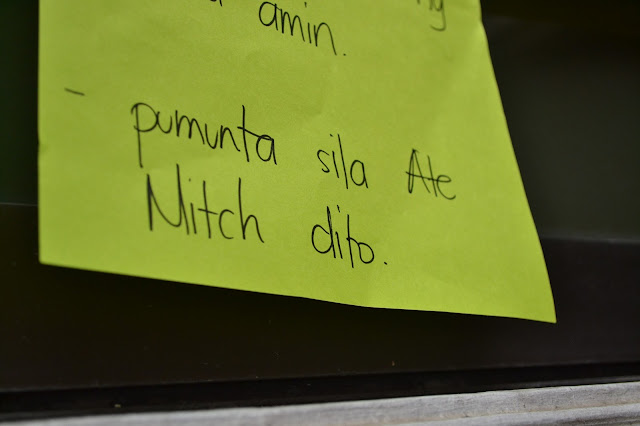 amin.
- pumunta sila Ate
Mitch dito.